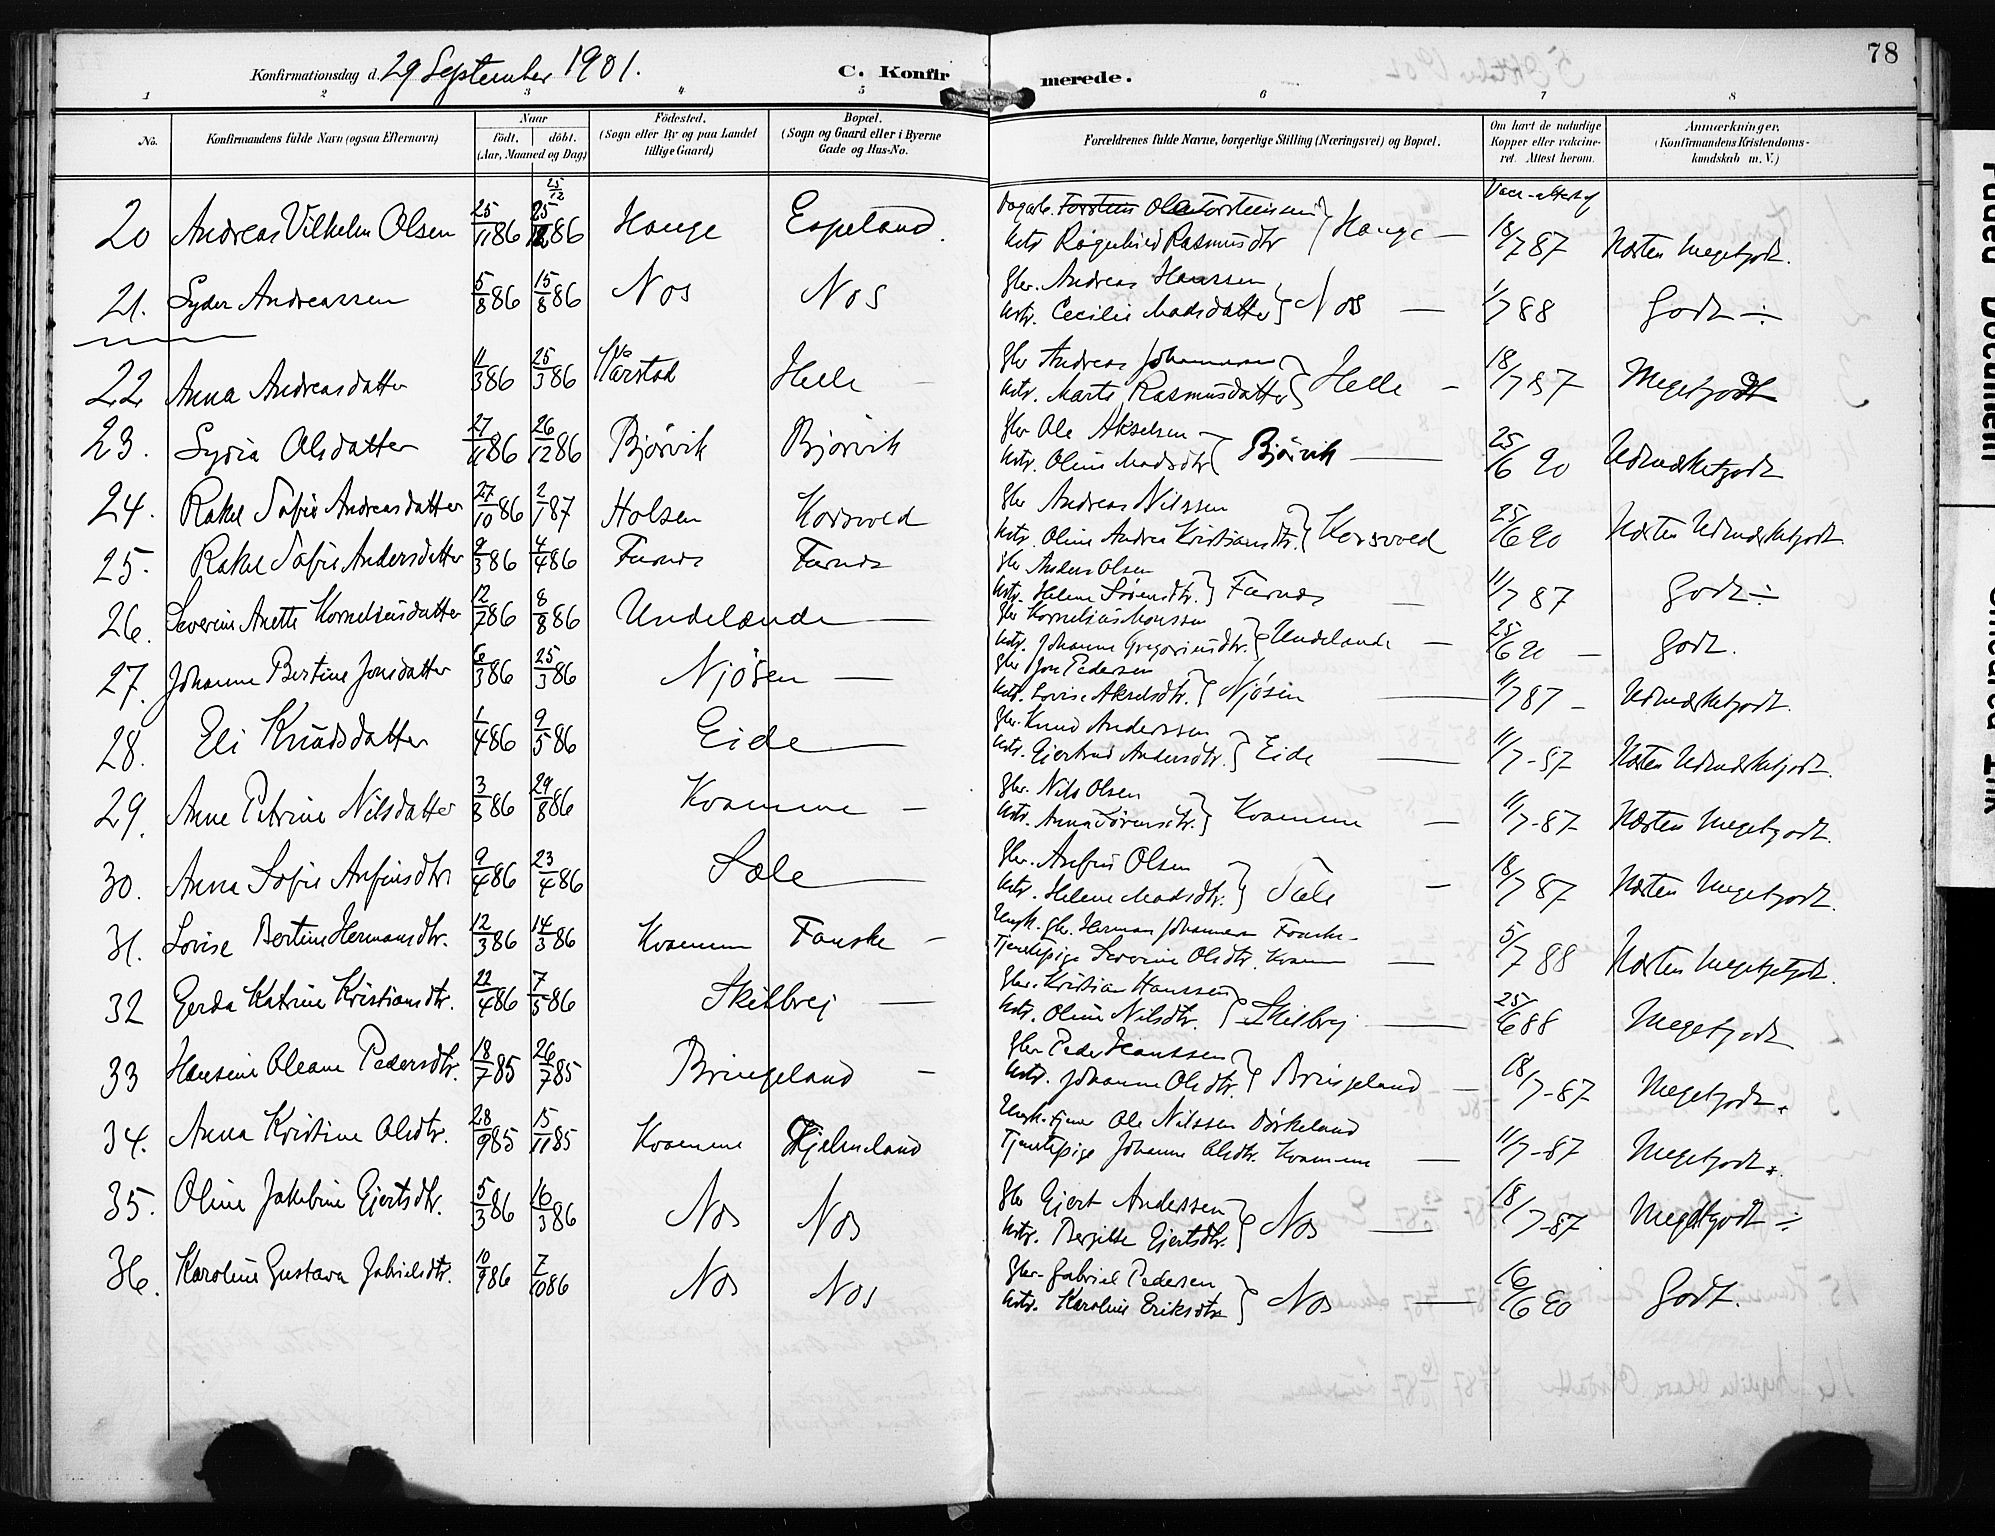 78
Konfirmationsdag d. 29 September 1901. C. Konfirmerede.
1 2 3 4 5 6 7 8
No. Konfirmandens fulde Navn (ogsaa Efternavn) Naar født. døbt. (Aar, Maaned og Dag) Fødested. (Sogn eller By og paa Landet tillige Gaard) Bopæl. (Sogn og Gaard eller i Byerne Gade og Hus-No. Forældrenes fulde Navne, borgerlige Stilling (Næringsvei) og Bopæl. Om havt de naturlige Kopper eller vaccineret. Attest herom. Anmærkninger. (Konfirmandens Kristendomskundskab m. V.)
20 Andreas Vilhelm Olsen 25/11 86 25/12 86 Hauge Espeland Ole Torsteinsen Rasmusdtr Hauge 18/7 87 Næsten Megetgodt.
21. Andreassen 5/8 86 15/8 86 Nos Nos Gbr. Andreas Hanssen Kstr. Cecilie Madsdatter Nos 1/7 88 Godt ÷
22 Anna Andreasdatter 11/3 86 25/3 86 Helle Gbr Andreas Johannesen Kstr. Marte Rasmusdatter Helle 18/7 87 Megetgodt
23. Olsdatter 27/11 86 26/12 86 Bjørvik Bjørvik Gbr Ole Akselsen Kstr. Oline Madsdtr Bjørvik 25/6 90 Udmerketgodt
24. Rakel Sofie Andreasdatter 27/10 86 2/1 87 Holsen Korsvold Gbr Andreas Nilssen Kstr. Oline Andrea Kristiansdtr. Korsvold 25/6 90 Næsten Udmerketgodt.
25. Rakel Sofie Andersdatter 2/3 86 4/4 86 Farnes Farnes Gbr Anders Olsen Kstr. Helene Sørensdtr. Farnes 11/7 87 Godt ÷
26. Severine Anette Korneliusdatter 12/7 86 8/8 86 Undelande Gbr Kornelius Monssen Kstr. Johanne Gregoriusdtr. Undelande 25/6 90 Godt.
27. Johanne Bertine Jonsdatter 6/3 86 25/3 86 Njøsen Gbr Jon Pedersen Kstr. Lovise Akselsdtr. Njøsen 11/7 87 Udmerketgodt.
28. Eli Knudsdatter 1/4 86 9/5 86 Eide Gbr. Knud Anderssen Kstr. Gjertrud Andersdtr. Eide 11/7-87 Næsten Udmerketgodt.
29. Anne Petrine Nilsdatter 3/8 86 29/8 86 Kvamme Gbr. Nils Olsen Kstr. Anna Sørensdtr. Kvamme 11/7-87 Næsten Megetgodt.
30. Anna Sofie Anfinsdtr 9/4 86 23/4 86 Sæle Gbr. Anfin Olsen Kstr. Helene Madsdtr. Sæle 18/7 87 Næsten Megetgodt.
31. Lovise Bertine Hermansdtr. 12/3 86 14/3 86 Kvamme Fauske Ungk. Gbr. Herman Johannesen Fauske Tjenestepige Severine Olsdtr. Kvamme 5/7 88 Næsten Megetgodt.
32 Gerda Katrine Kristiansdtr. 22/4 86 7/5 86 Skilbrej Gbr. Kristian Hanssen Kstr. Oline Nilsdtr. Skilbrej 25/6 88 Megetgodt
33 Hansine Oleane Pedersdtr. 18/7 85 26/7 85 Bringeland Gbr Peder Hanssen Kstr. Johanne Olsdtr. Bringeland 18/7-87 Megetgodt.
34. Anna Kristine Olsdtr. 28/9 85 15/11 85 Kvamme Hjelmeland Ungk. tjener Ole Nilssen Tjenestepige Johanne Olsdtr. Kvamme 11/7-87 Megetgodt.
35. Oline Jakobine Gjertsdtr. 5/3 86 16/3 86 Nos Nos Gbr Gjert Anderssen Kstr. Gjertsdtr. Nos 18/7-87 Megetgodt ÷
36. Karoline Gustava Gabrielsdtr. 10/9 86 7/10 86 Nos Nos Gbr. Gabriel Pedersen Kstr. Karoline Eriksdtr Nos 16/6 90 Godt.